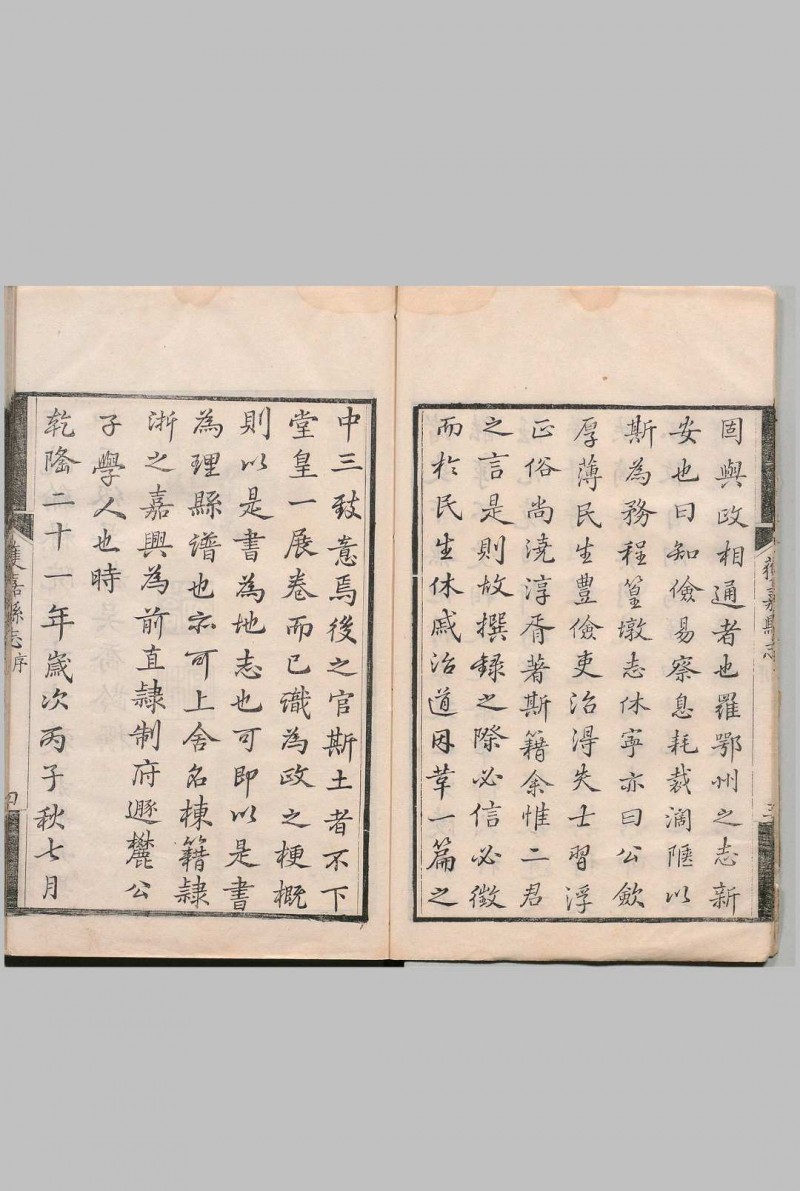 固與政相通者也羅鄂州之志新
安也曰知儉易察息耗裁濶陿以
斯為務程篁墩志休寧亦曰公歛
厚薄民生豊儉吏治淂失士習浮
正俗尚澆淳胥著斯籍余惟二君
之言是則故撰録之際必信必徵
而於民生休戚治道因革一篇之
獲嘉縣志
三
中三致意焉後之官斯土者不下
堂皇一展卷而已識為政之梗概
則以是書為地志也可即以是書
為理縣譜也亦可上舍名棟籍隷
淅之嘉興為前直隷制府遯麓公
子學人也時
乾隆二十一年歲次丙子秋七月
獲嘉縣志
序
四